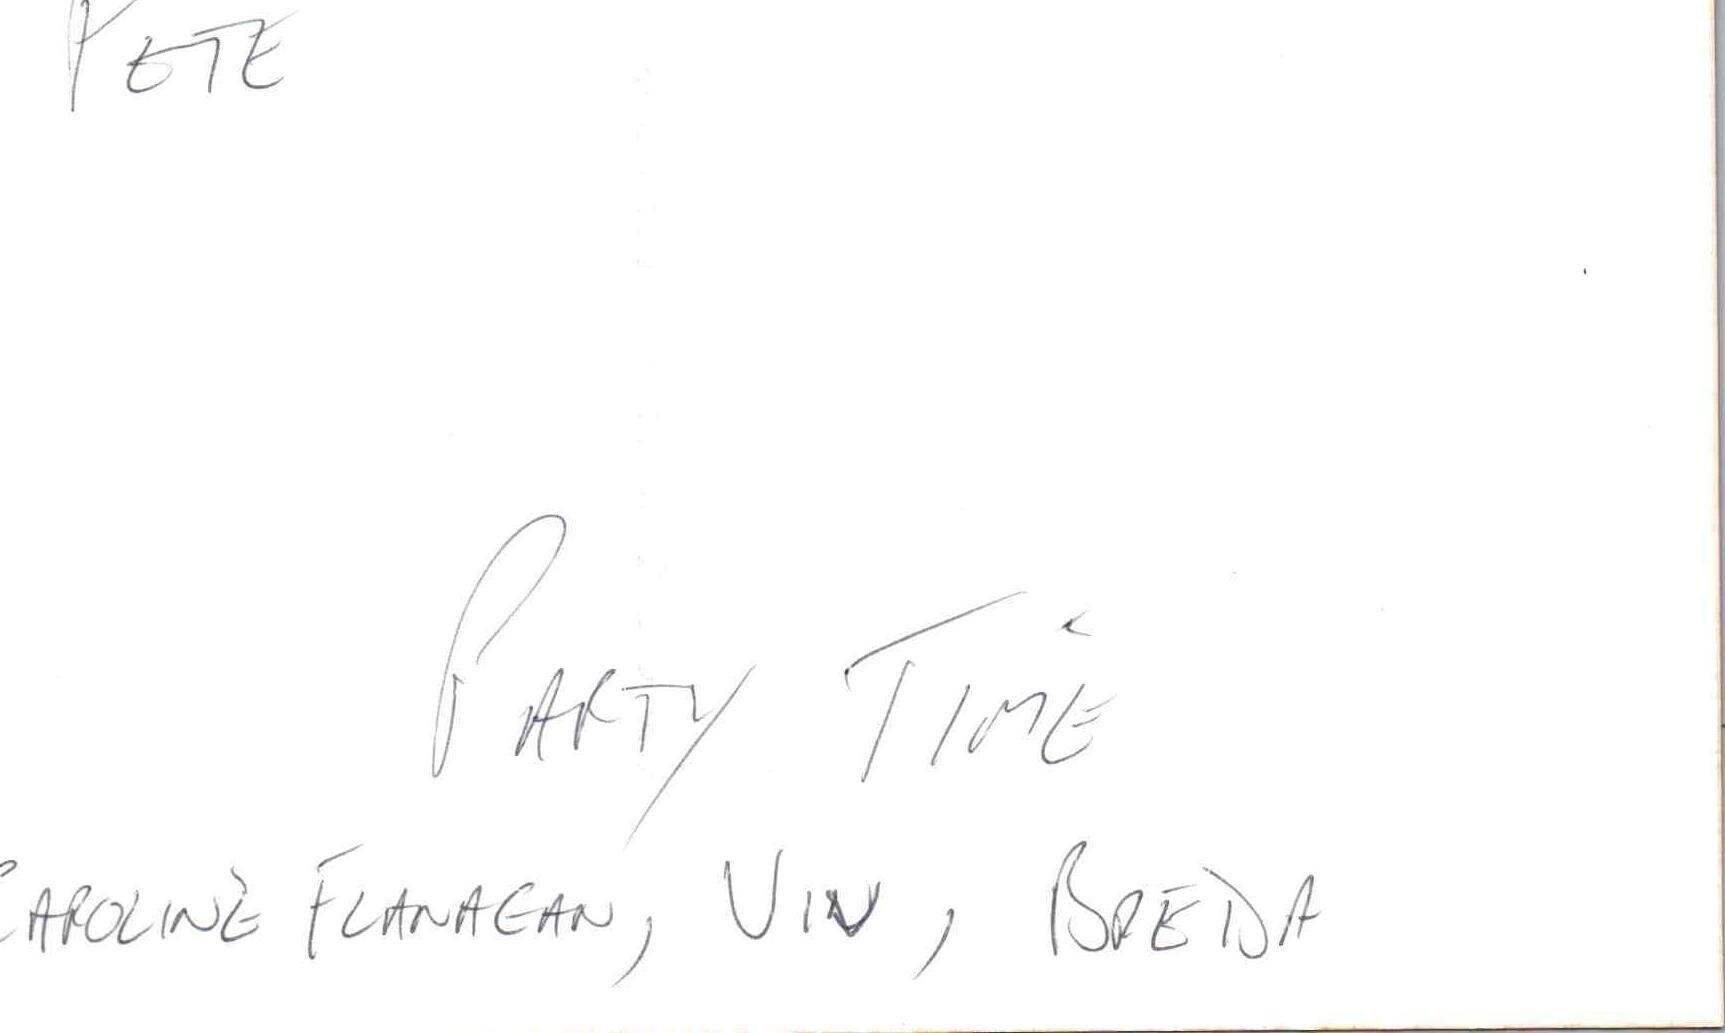 PETE
PARTY TIME
CAROLINE FLANAGAN, VIV, BREDA